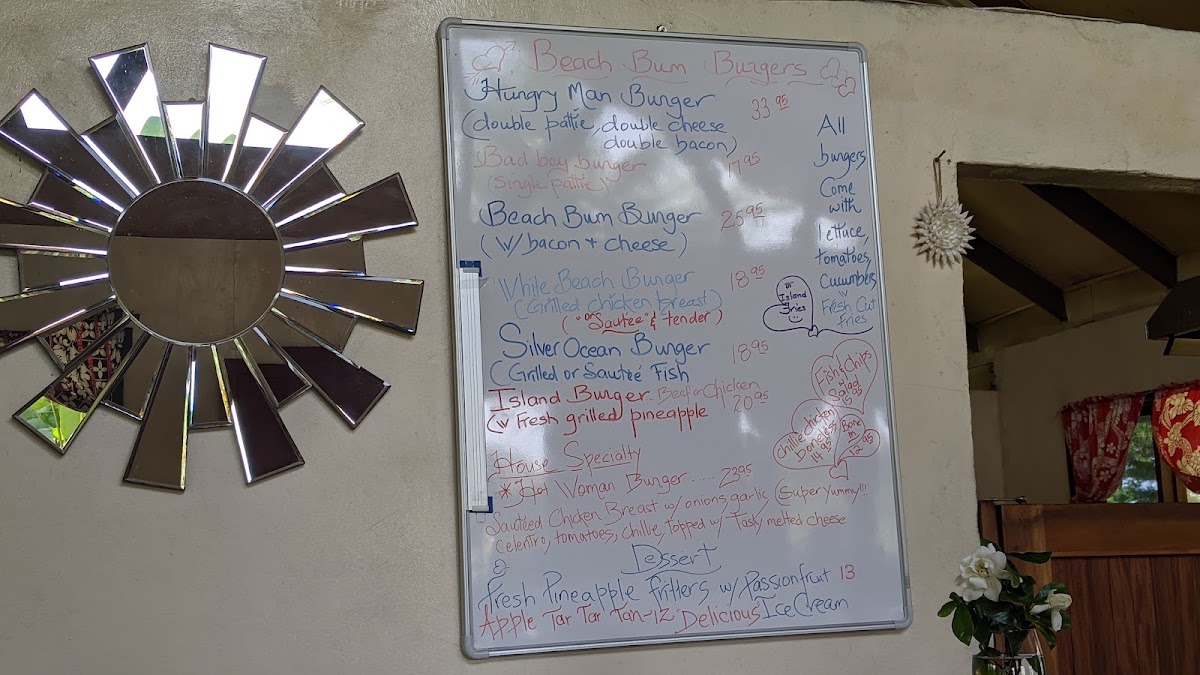 Beach Bum Burgers
Hungry Man Burger 33 95
(double pattie, double cheese
double bacon)
Bad boy burger 17 95
(single pattie)
Beach Bum Burger 25 95
(w/ bacon + cheese)
White Beach Burger 18 95
(Grilled chicken breast)
("or Sauteé" & tender)
Silver Ocean Burger 18 95
(Grilled or Sauteé Fish
Island Burger Beef or Chicken
20 95
(w Fresh grilled pineapple
House Specialty
* Hot Woman Burger ..... 23 95
Sauteed Chicken Breast w/ onions garlic (Super Yummy!!!
celentro, tomatoes, chillie, topped w/ Tasty melted cheese
Dessert
Fresh Pineapple fritters w/ Passionfruit 13
Apple Tar Tar Tan-12 Delicious Ice Cream
All
burgers
Come
with
lettuce,
tomatoes,
Cucumbers
w
Fresh Cut
Fries
Island
fries
Fish & Chips
Salad
15 95
Chillie Chicken
boneless
14 95
Bone
in
12 95